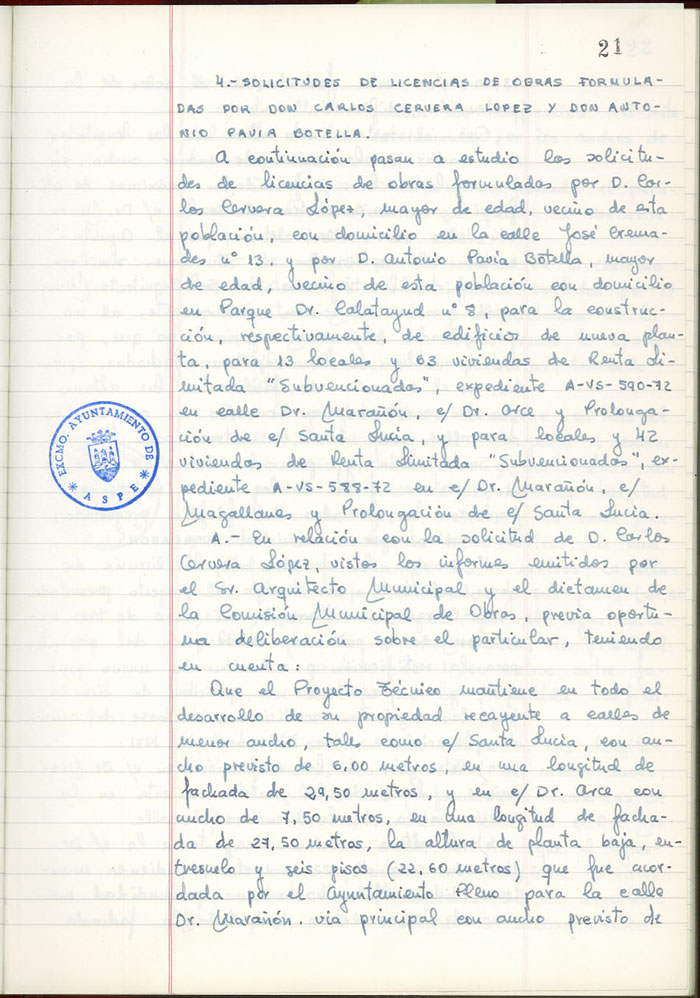 21
4.- SOLICITUDES DE LICENCIAS DE OBRAS FORMULA-
DAS POR DON CARLOS CERVERA LOPEZ Y DON ANTO-
NIO PAVIA BOTELLA.
A continuación pasan a estudio las solicitu-
des de licencias de obras formuladas por D. Car-
los Cervera López, mayor de edad, vecino de esta
población, con domicilio en la calle José Crema-
des nº 13. y por D. Antonio Pavía Botella, mayor
de edad, vecino de esta población con domicilio
en Parque Dr. Calatayud nº 8, para la construc-
ción, respectivamente, de edificios de nueva plan-
ta, para 13 locales y 63 viviendas de Renta Li-
mitada "Subvencionadas", expediente A-VS-590-72
en calle Dr. Marañón, c/ Dr. Arce y Prolonga-
ción de c/ Santa Lucía, y para locales y 42
viviendas de Renta Limitada "Subvencionadas", ex-
pediente A-VS-588-72 en c/ Dr. Marañón, c/
Magallanes y Prolongación de c/ Santa Lucia.
A.- En relación con la solicitud de D. Carlos
Cervera López, vistos los informes emitidos por
el Sr. Arquitecto Municipal y el dictamen de
la Comisión Municipal de Obras, previa oportu-
na deliberación sobre el particular, teniendo
en cuenta:
Que el Proyecto Técnico mantiene en todo el
desarrollo de su propiedad recayente a calles de
menor ancho, tales como c/ Santa Lucía, con an-
cho previsto de 6,00 metros, en una longitud de
fachada de 29,50 metros, y en c/ Dr. Arce con
ancho de 7,50 metros, en una longitud de facha-
da de 27,50 metros, la altura de planta baja, en-
tresuelo y seis pisos (22,60 metros) que fue acor-
dada por el Ayuntamiento Pleno para la calle
Dr. Marañón. vía principal con ancho previsto de
EXCMO. AYUNTAMIENTO DE
* ASPE *